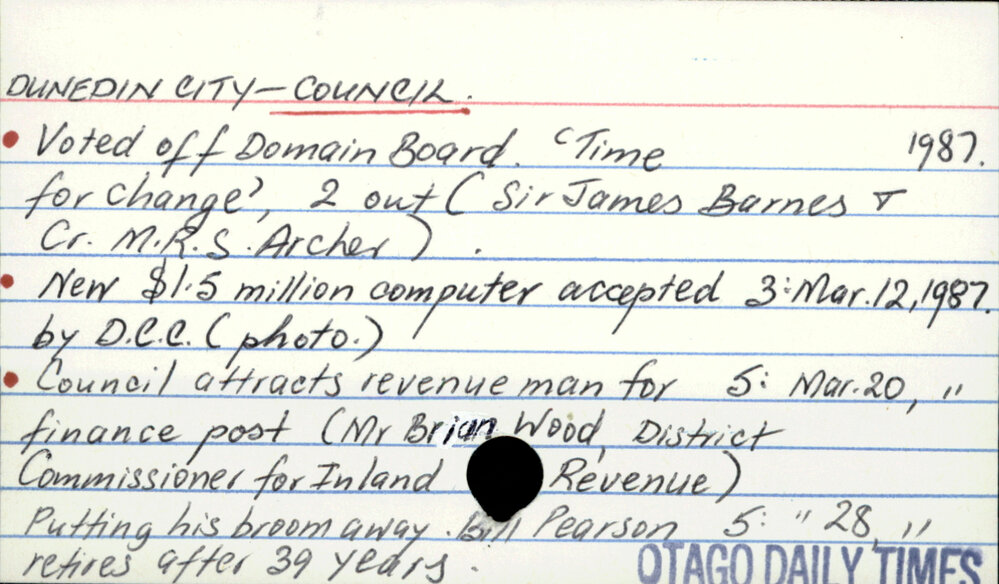 DUNEDIN CITY – COUNCIL.
• Voted off Domain Board. ‘Time 1987.
for change’, 2 out ( Sir James Barnes &
Cr. M.R.S. Archer ) .
• New $1.5 million computer accepted 3: Mar. 12, 1987.
by D.C.C. ( photo. )
• Council attracts revenue man for 5: Mar. 20, "
finance post ( Mr Brian Wood, District
Commissioner for Inland Revenue )
Putting his broom away. Bill Pearson 5: " 28, "
retires after 39 years.
OTAGO DAILY TIMES